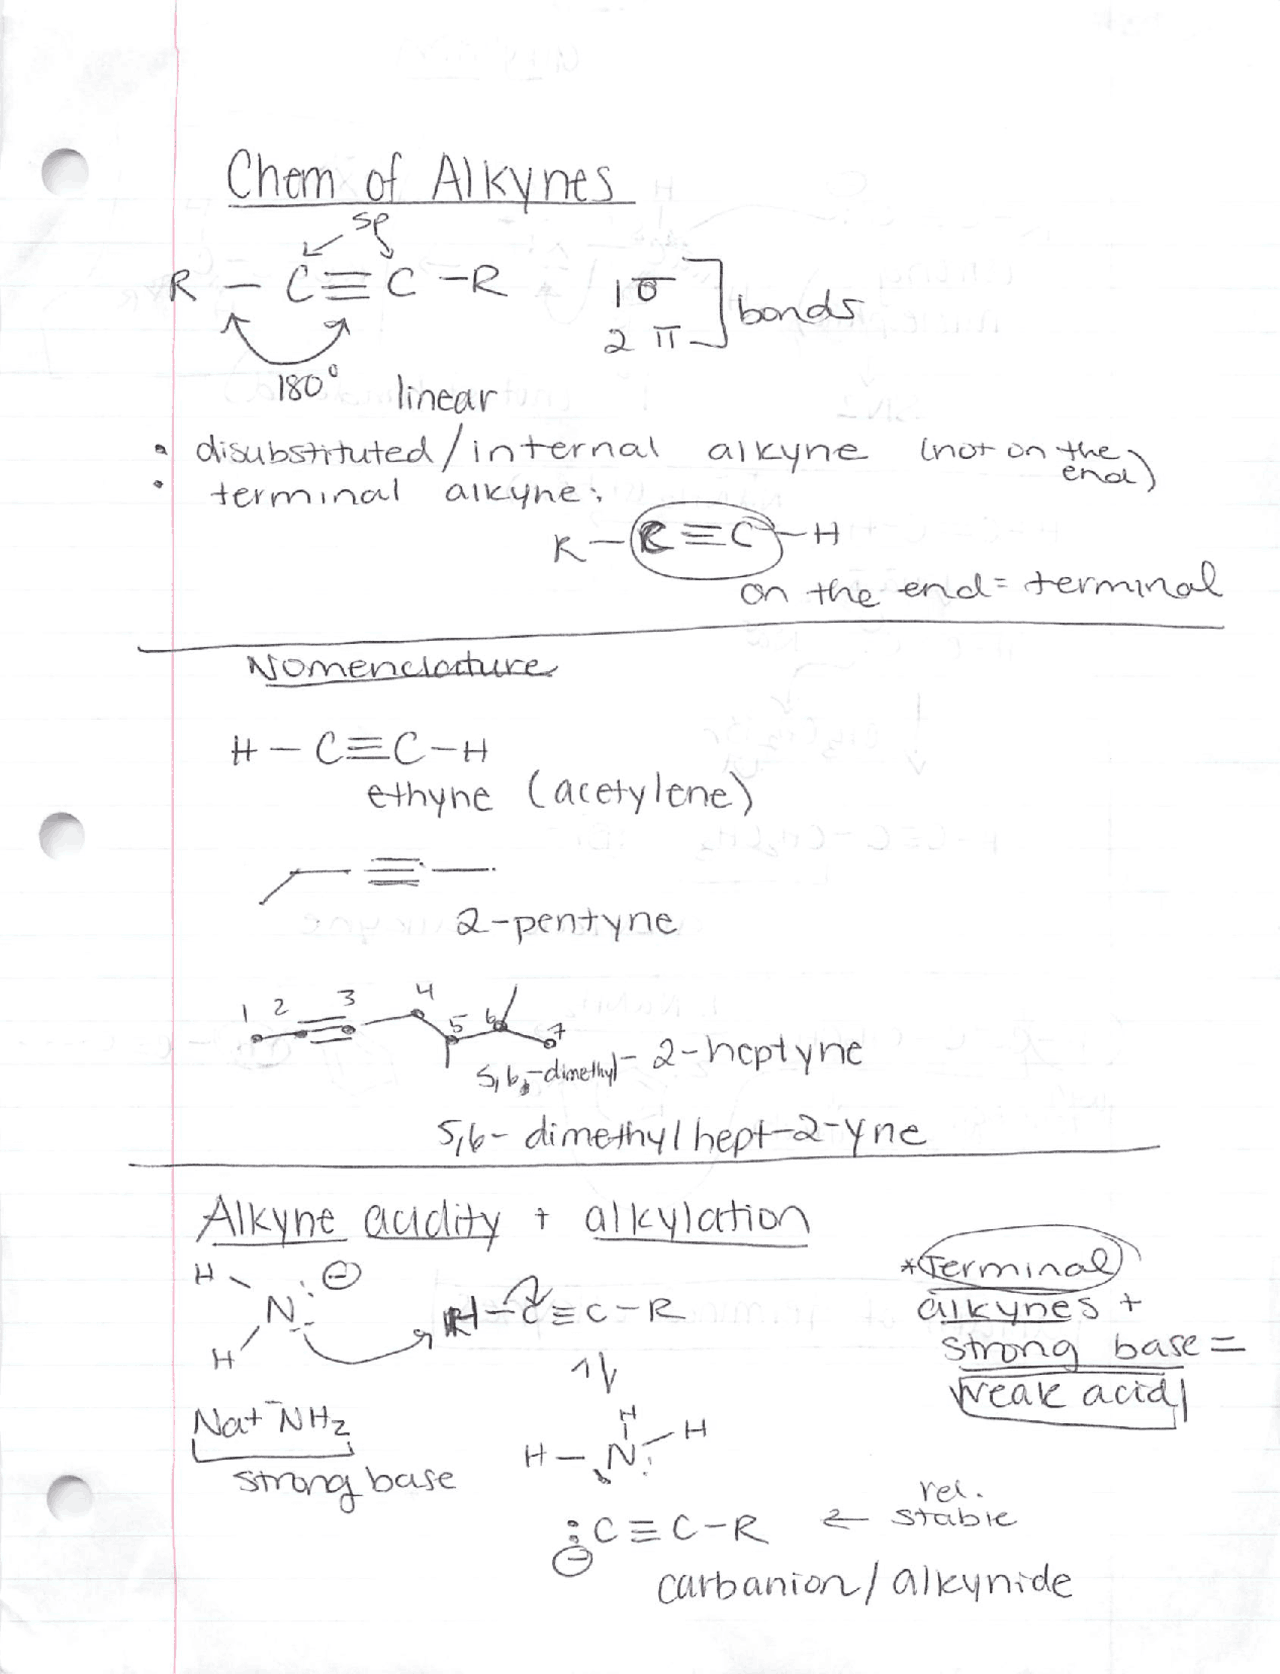 Chem of Alkynes
sp
R - C≡C -R
1σ
2 π
bonds
180° linear
• disubstituted/internal alkyne (not on the end)
• terminal alkyne:
R-C≡C-H
on the end = terminal
Nomenclature
H - C≡C-H
ethyne (acetylene)
2-pentyne
1 2 3 4 5 6 7
5,6,-dimethyl- 2-heptyne
5,6- dimethylhept-2-yne
Alkyne acidity + alkylation
H N: ⊖
H
H-C≡C-R
*Terminal
alkynes +
strong base =
weak acid
Na+ -NH2
strong base
H
H - N: - H
:C≡C-R ← rel. stable
⊖
carbanion/alkynide